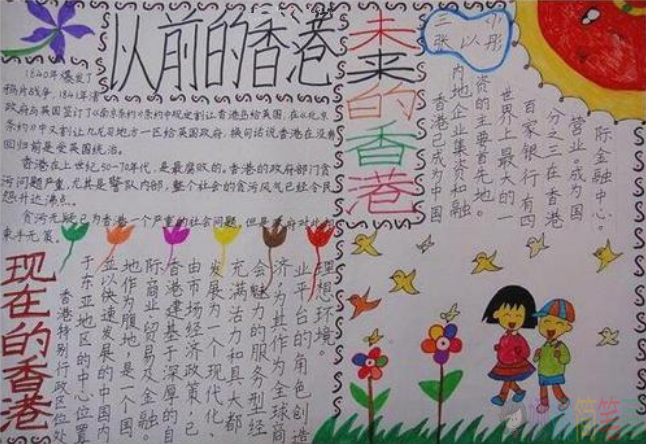 以前的香港
1840年爆发了
鸦片战争,1841年清
政府与英国签订了《南京条约》条约中规定割让香港岛给英国,在《北京
条约》中又割让九龙司地方一区给英国政府。换句话说香港在没有
回归前是受英国统治。
香港在上世纪50-70年代,是最腐败的。香港的政府部门贪
污问题严重,尤其是警队内部,整个社会的贪污风气已经令民
怨升达沸点。
贪污无疑已为香港一个严重的社会问题,但是政府对此却
束手无策。
未来的香港
三 小
张以彤
香港已成为中国
内地企业集资和融
资的主要首先地。
世界上最大的一
百家银行有四
分之三在香港
营业。成为国
际金融中心。
现在的香港
香港特别行政区位处
于东亚地区的中心位置
並以快速发展的中国内
地作为腹地,是一个国
际商业贸易及金融。
香港建基于深厚的自
由市场经济政策,已
发展为一个现代化、
充满活力和具大都
会魅力的服务型经
济,为其作为全球商
业平台的角色创造
理想环境。